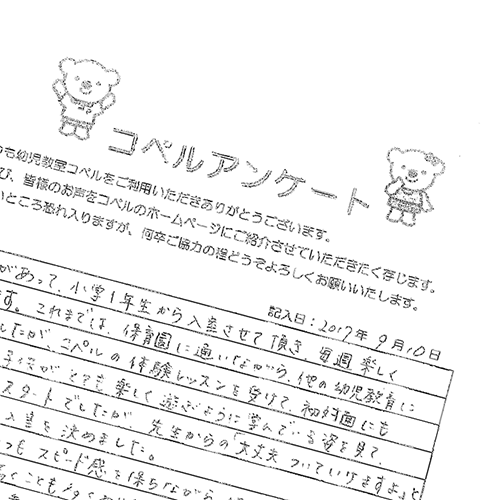 コペルアンケート
も幼児教室コペルをご利用いただきありがとうございます。
び、皆様のお声をコペルのホームページにご紹介させていただきたく存じます。
いところ恐れ入りますが、何卒ご協力の程どうぞよろしくお願いいたします。
記入日：2017年 9月10日
があって、小学1年生から入室させて頂き、毎週楽しく
ます。これまでは、保育園に通いながら、他の幼児教育に
したが、コペルの体験レッスンを受けて、初対面にも
子供がとても楽しく遊ぶように学んでいる姿を見て、
スタートでしたが、先生からの「大丈夫 ついていけますよ」と
入室を決めました。
つもスピード感を保ちながら、